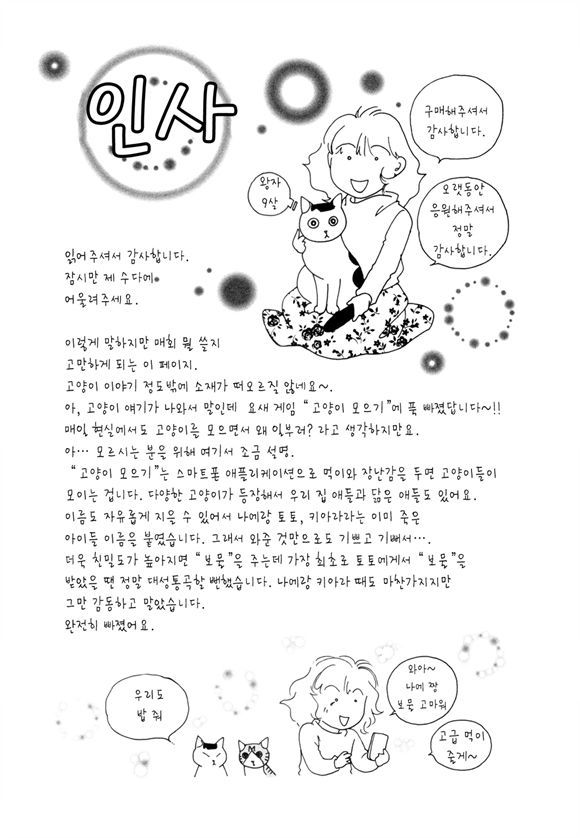 인사
구매해주셔서
감사합니다.
왕자
9살
오랫동안
응원해주셔서
정말
감사합니다.
읽어 주셔서 감사합니다.
잠시만 제 수다에
어울려주세요.
이렇게 말하지만 매회 뭘 쓸지
고민하게 되는 이 페이지.
고양이 이야기 정도밖에 소재가 떠오르질 않네요~.
아, 고양이 얘기가 나와서 말인데 요새 게임 “고양이 모으기”에 푹 빠졌답니다~!!
매일 현실에서도 고양이를 모으면서 왜 일부러? 라고 생각하지만요.
아… 모르시는 분을 위해 여기서 조금 설명.
“고양이 모으기”는 스마트폰 애플리케이션으로 먹이와 장난감을 두면 고양이들이
모이는 겁니다. 다양한 고양이가 등장해서 우리 집 애들과 닮은 애들도 있어요.
이름도 자유롭게 지을 수 있어서 나에랑 토토, 키아라라는 이미 죽은
아이들 이름을 붙였습니다. 그래서 와준 것만으로도 기쁘고 기뻐서….
더욱 친밀도가 높아지면 “보물”을 주는데 가장 최초로 토토에게서 “보물”을
받았을 땐 정말 대성통곡할 뻔했습니다. 나에랑 키아라 때도 마찬가지지만
그만 감동하고 말았습니다.
완전히 빠졌어요.
우리도
밥 줘
와아~
나에 짱
보물 고마워
고급 먹이
줄게~